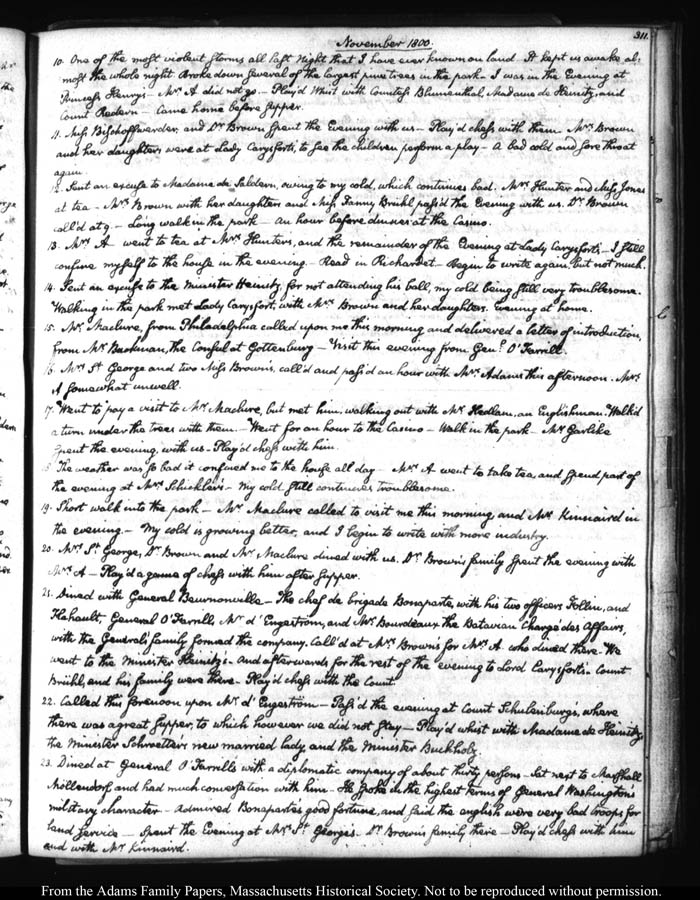 311.
November 1800.
10. One of the most violent storms all last night that I have ever known on land. It kept us awake al-
most the whole night Broke down several of the largest pine trees in the park- I was in the Evening at
Princess Henry's- Mrs. A did not go- Play'd Whist with Countess Blumenthal, Madame de Heinitz, and
Count Redern- Came home before supper.
11. Miss Bischoffwerder, and Dr. Brown spent the Evening with us- Play'd chess with them- Mrs. Brown
and her daughters were at Lady Carysfort's, to see the children perform a play- A bad cold and sore throat
again.
12. Sent an excuse to Madame de Saldern, owing to my cold, which continues bad. Mrs. Hunter and Miss Jones
at tea- Mrs. Brown with her daughters and Miss Fanny Brühl pass'd the Evening with us. Dr. Brown
call'd at 9.- Long walk in the park- an hour before dinner at the Casino.
13. Mrs. A went to tea at Mrs. Hunters, and the remainder of the Evening at Lady Carysfort's- I still
confine myself to the house in the evening- Read in Richardet- Begin to write again, but not much.
14. Sent an excuse to the Minister Heinitz, for not attending his ball, my cold being still very troublesome.
Walking in the park met Lady Carysfort, with Mrs. Brown and her daughters. Evening at home.
15. Mr. Maclure, from Philadelphia called upon me this morning and delivered a letter of introduction,
from Mr. Backman, the Consul at Gottenburg- Visit this evening from Genl. O'Farrill.
16. Mrs. St. George and two Miss Browns, call'd and pass'd an hour with Mrs. Adams this afternoon. Mrs.
A somewhat unwell.
17. Went to pay a visit to Mr. Maclure, but met him, walking out with Mr. Hedlam, an Englishman. Walk'd
a turn under the trees with them- Went for an hour to the Casino- Walk in the park- Mr. Garlike
spent the evening with us- Play'd chess with him.
The weather was so bad it confined me to the house all day- Mrs. A went to take tea, and spend part of
the evening at Mrs. Schickler's- My cold still continues troublesome.
19. Short walk into the park- Mr. Maclure called to visit me this morning, and Mr. Kinnaird in
the evening.- My cold is growing better, and I begin to write with more industry.
20. Mrs. St. George, Dr. Brown and Mr. Maclure dined with us. Dr. Brown's family spent the evening with
Mrs. A- Play'd a game of chess with him after supper.
21. Dined with General Beurnonville- The chef de brigade Bonaparte, with his two officers Follin, and
Flahault, General O'Farrill, Mr. d'Engeström, and Mr. Bourdeaux the Batavian Chargé des Affairs,
with the General's family formed the company. Call'd at Mrs. Brown's for Mrs. A who dined there. We
went to the Minister Heinitz's- And afterwards for the rest of the evening to Lord Carysfort's. Count
Brühl, and his family were there. Play'd chess with the Count.
22. Called this forenoon upon Mr. d'Engeström- Pass'd the evening at Count Schulenburg's, where
there was a great supper, to which however we did not stay- Play'd whist with Madame de Heinitz,
the Minister Schroetter's new married lady, and the Minister Buchholz.
23. Dined at General O'Farrill's with a diplomatic company of about thirty persons- Sat next to Marshall
Möllendorf, and had much conversation with him- He spoke in the highest terms of General Washington's
military character- admired Bonaparte's good fortune, and said the english were very bad troops for
land service- Spent the Evening at Mrs. St. George's. Dr. Brown's family there- Play'd chess with him
and with Mr. Kinnaird.
From the Adams Family Papers, Massachusetts Historical Society. Not to be reproduced without permission.